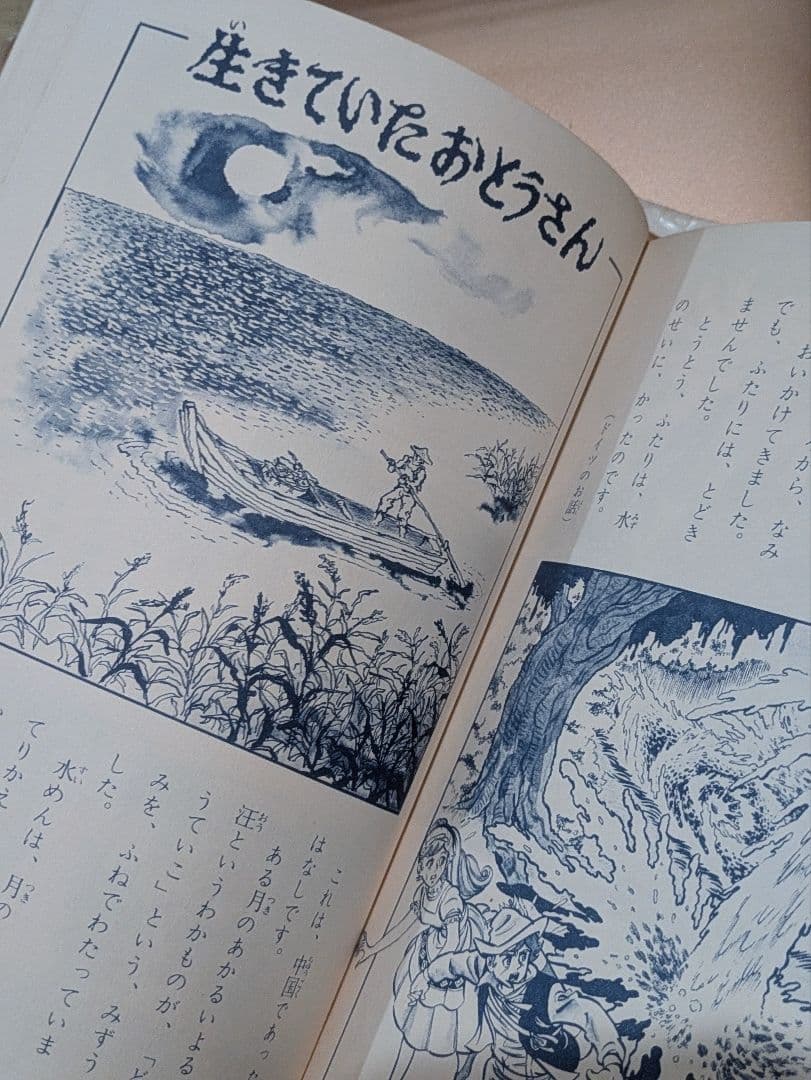 おいかけてきました。
でも、ふたりには、とどき
ませんでした。
とうとう、ふたりは、水
のせいに、かったのです。
(ドイツのお話)
生きていたおとうさん
これは、中国であった
はなしです。
ある月のあかるいよる
汪というわかものが、「ど
うていこ」という、みずう
みを、ふねでわたっていま
した。
水めんは、月の
てりかえ